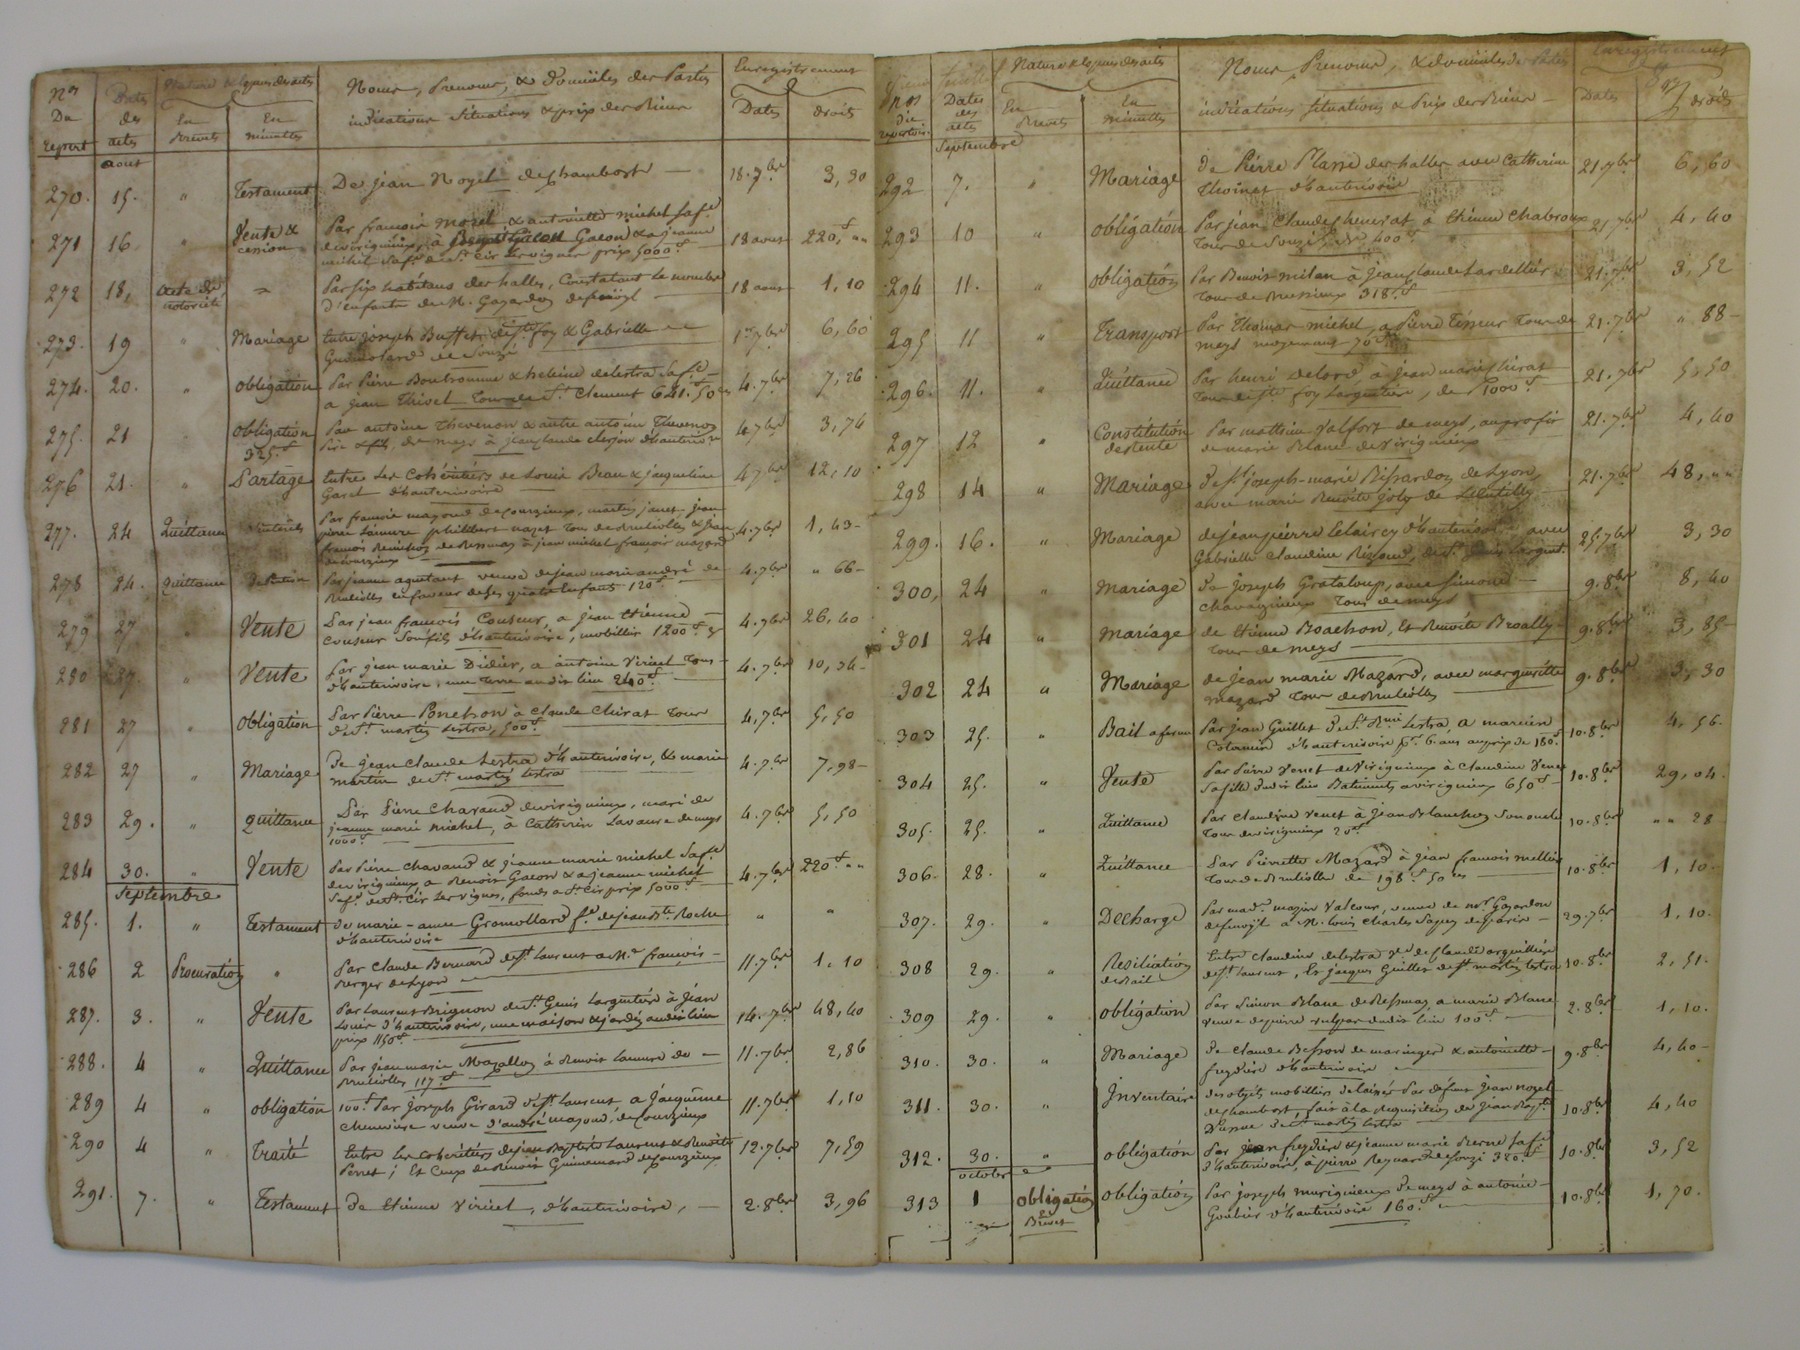 Nos Du Repert
Dates des actes
Nature & espèces des actes
En Brevets
En minuttes
Noms, Prenoms, & domiciles des Parties
indications Situations & prix des Biens
Enregistrement
Dates
droits
aout
270. 15. " Testament De jean Noyel de chambost — 18.7bre 3,30
271 16 " Vente & cession Par francois morel & antoinette michel saf.e
devirigneux, à Benoit Gacon & a jeanne 18 aout 220,f " "
michel saf.e de St Cir les vignes prix 5000f
272 18, acte de notoriété " Par six habitans des halles, Constatant le nombre 18 aout 1,10
d'enfants de M. Gazardon
273. 19 " Mariage Entre joseph Buffet de Ste foy & Gabrielle 1er 7bre 6,60
de Souzi
274. 20. " obligation Par Pierre Bontromme & helaine delestra saf.e 4.7bre 7,26
a jean Thivel Tous de St Clement 641.f 50 cs
275. 21 " obligation Par antoine Thevenon & autre antoine Thevenon 4.7bre 3,74
325.f Père & fils, de meys à jean claude cherjon d'hauterivoire
276 21. " Partage Entre les Cohéritiers de Louis Beau & jacqueline 4.7bre 12,10
Garel d'hauterivoire
277. 24 Quittance Par francois mazond de courzieux, martin janet jean
pierre Lanoire philibert nazet Tous de Brulioles & jean 4.7bre 1,43 —
francois Benichon de Bessenay à jean michel françois mazard
de courzieux
278 24. Quittance Par jeanne agustant veuve de jean marie andré de 4.7bre " 66 —
Brulioles en faveur de ses quatre enfants 120f
279 27 " Vente Par jean francois Couseur, a jean etienne 4.7bre 26,40
couseur son fils d'hauterivoire, mobilier 1200f
280 27. " Vente Par jean marie Didier, a antoine Viricel Tous 4.7bre 10,56 —
d'hauterivoire, une Terre audit lieu 240f
281 27 " obligation Par Pierre Ponchon à Claude Chirat Tour 4.7bre 5,50
de St martin lestra, 500f
282 27 " Mariage De jean Claude Lestra d'hauterivoire, & marie 4.7bre 7,98 —
martin de St martin lestra
283 29. " quittance Par Pierre Chavand devirigneux, mari de 4.7bre 5,50
jeanne marie michel, à Catherin Lavaure de meys
1000f
284 30. " Vente Par Pierre chavand & jeanne marie michel saf.e
devirigneux a Benoit Gacon & a jeanne michel 4.7bre 220f " "
saf.e de St Cir les vignes, fonds a St Cir prix 5000f
Septembre
285. 1. " Testament de marie-anne Gromollard f.e de jean Bte Roche " "
d'hauterivoire
286 2 Procuration " Par Claude Bernard de St Laurent a Me françois 11.7bre 1,10
Berger de Lyon
287. 3. " Vente Par Laurent Brignon de St Genis Largentière à jean 14.7bre 48,40
Louis d'hauterivoire, une maison & jardin audit lieu
prix 1150f
288. 4 " Quittance Par jean marie Mazallon à Benoit Lanoire de 11.7bre 2,86
Brulioles 117f
289 4 " obligation 100f Par joseph Girard de St Laurent a jacqueme 11.7bre 1,10
chenevière veuve d'andré mazond, de courzieux
290 4 " Traité Entre les cohéritiers de jean Baptiste Laurent & Benoite 12.7bre 7,59
Perret; Et Ceux de Benoit Guinemard de courzieux
291. 7. " Testament De etienne Viricel, d'hauterivoire, — 2.8bre 3,96
Nos du repertoire
Dates des actes
Nature & espèces des actes
En Brevets
En minuttes
Noms Prenoms, & domiciles des Parties
indications situations & Prix des Biens
Enregistrement
Dates
droits
Septembre
292 7. " Mariage de Pierre Plasse des halles avec Catherine 21.7bre 6,60
Thoinet d'hauterivoire
293 10 " obligation Par jean Claude chenerat a etienne chabroux 21.7bre 4,40
Tour de Souzi de 400f
294 11. " obligation Par Benoit milan à jean claude Lardellier 21.7bre 3,52
Tour de Brussieux 318f
295 11 " Transport Par Thomas michel, a Pierre Tisseur Tour de 21.7bre " 88 —
meys moyennant 70f
296. 11. " Quittance Par henri Delord, a jean marie chirat 21.7bre 5,50
Tour de Ste foy Largentière, de 1000f
297 12 " Constitution de Rente Par mathieu Valfort de meys, au profit 21.7bre 4,40
de marie Blanc de virigneux
298 14 " Mariage De St joseph-marie Bissardon de Lyon, 21.7bre 48, " "
avec marie Benoite Joly de Lentilly
299. 16. " Mariage de jean pierre Leclaircy d'hauterivoire avec 25.7bre 3,30
Gabrielle claudine Rigaud, de St Genis Largent.
300, 24 " Mariage De joseph Grataloup, avec Simone 9.8bre 8,40
chavagnieux Tous de meys
301 24 " Mariage de Etienne Boachon, Et Benoite Broally 9.8bre 3,85 —
Tour de meys
302 24 " Mariage de jean marie Mazard, avec marguerite 9.8bre 3,30
mazard Tour de Brulioles
303 25. " Bail a ferme Par jean Guillet de St Bmi Lestra, a marcien 10.8bre 4,56.
d'hauterivoire pr 6 ans au prix de 180f
304 25. " Vente Par Pierre Venet de Virigneux à Claudine Venet 10.8bre 29,04.
sa fille dudit lieu Batiments a virigneux 650f
305. 25. " Quittance Par Claudine venet à jean Blanchon son oncle 10.8bre " " 28
Tour de virigneux 20f
306. 28. " Quittance Par Pierrette Mazard à jean francois mellier 10.8bre 1,10.
Tour de Brulioles de 198f 50 cs
307. 29. " Decharge Par mad.e major Valcour, veuve de Mr Gazardon 29.7bre 1,10.
a M. Louis Charles Sapey de Paris —
308 29. " Resiliation de Bail Entre Claudine delestra ve de Claude arquillière 10.8bre 2,51.
de St Laurent, Et jacques Guillet de St martin lestra
309 29. " obligation Par Simon Blanc de Bessenay, a marie Blanc 2.8bre 1,10.
veuve de pierre vulpas dudit lieu 100f
310. 30. " Mariage de claude Besson de maringes & antoinette 9.8bre 4,40 —
freydière d'hauterivoire
311. 30. " Inventaire des objets mobilliers delaissés Par defunt jean noyel
de chambost, fait à la requisition de jean Bapte 10.8bre 4,40
de St martin Lestra
312. 30. " obligation Par jean freydière & jeanne marie Berne saf.e 10.8bre 3,52
d'hauterivoire, à pierre Reynard de souzi 320f
octobre
313 1 obligation En Brevet obligation Par joseph murigneux de meys à antoine 10.8bre 1,70.
Goubier d'hauterivoire 160f